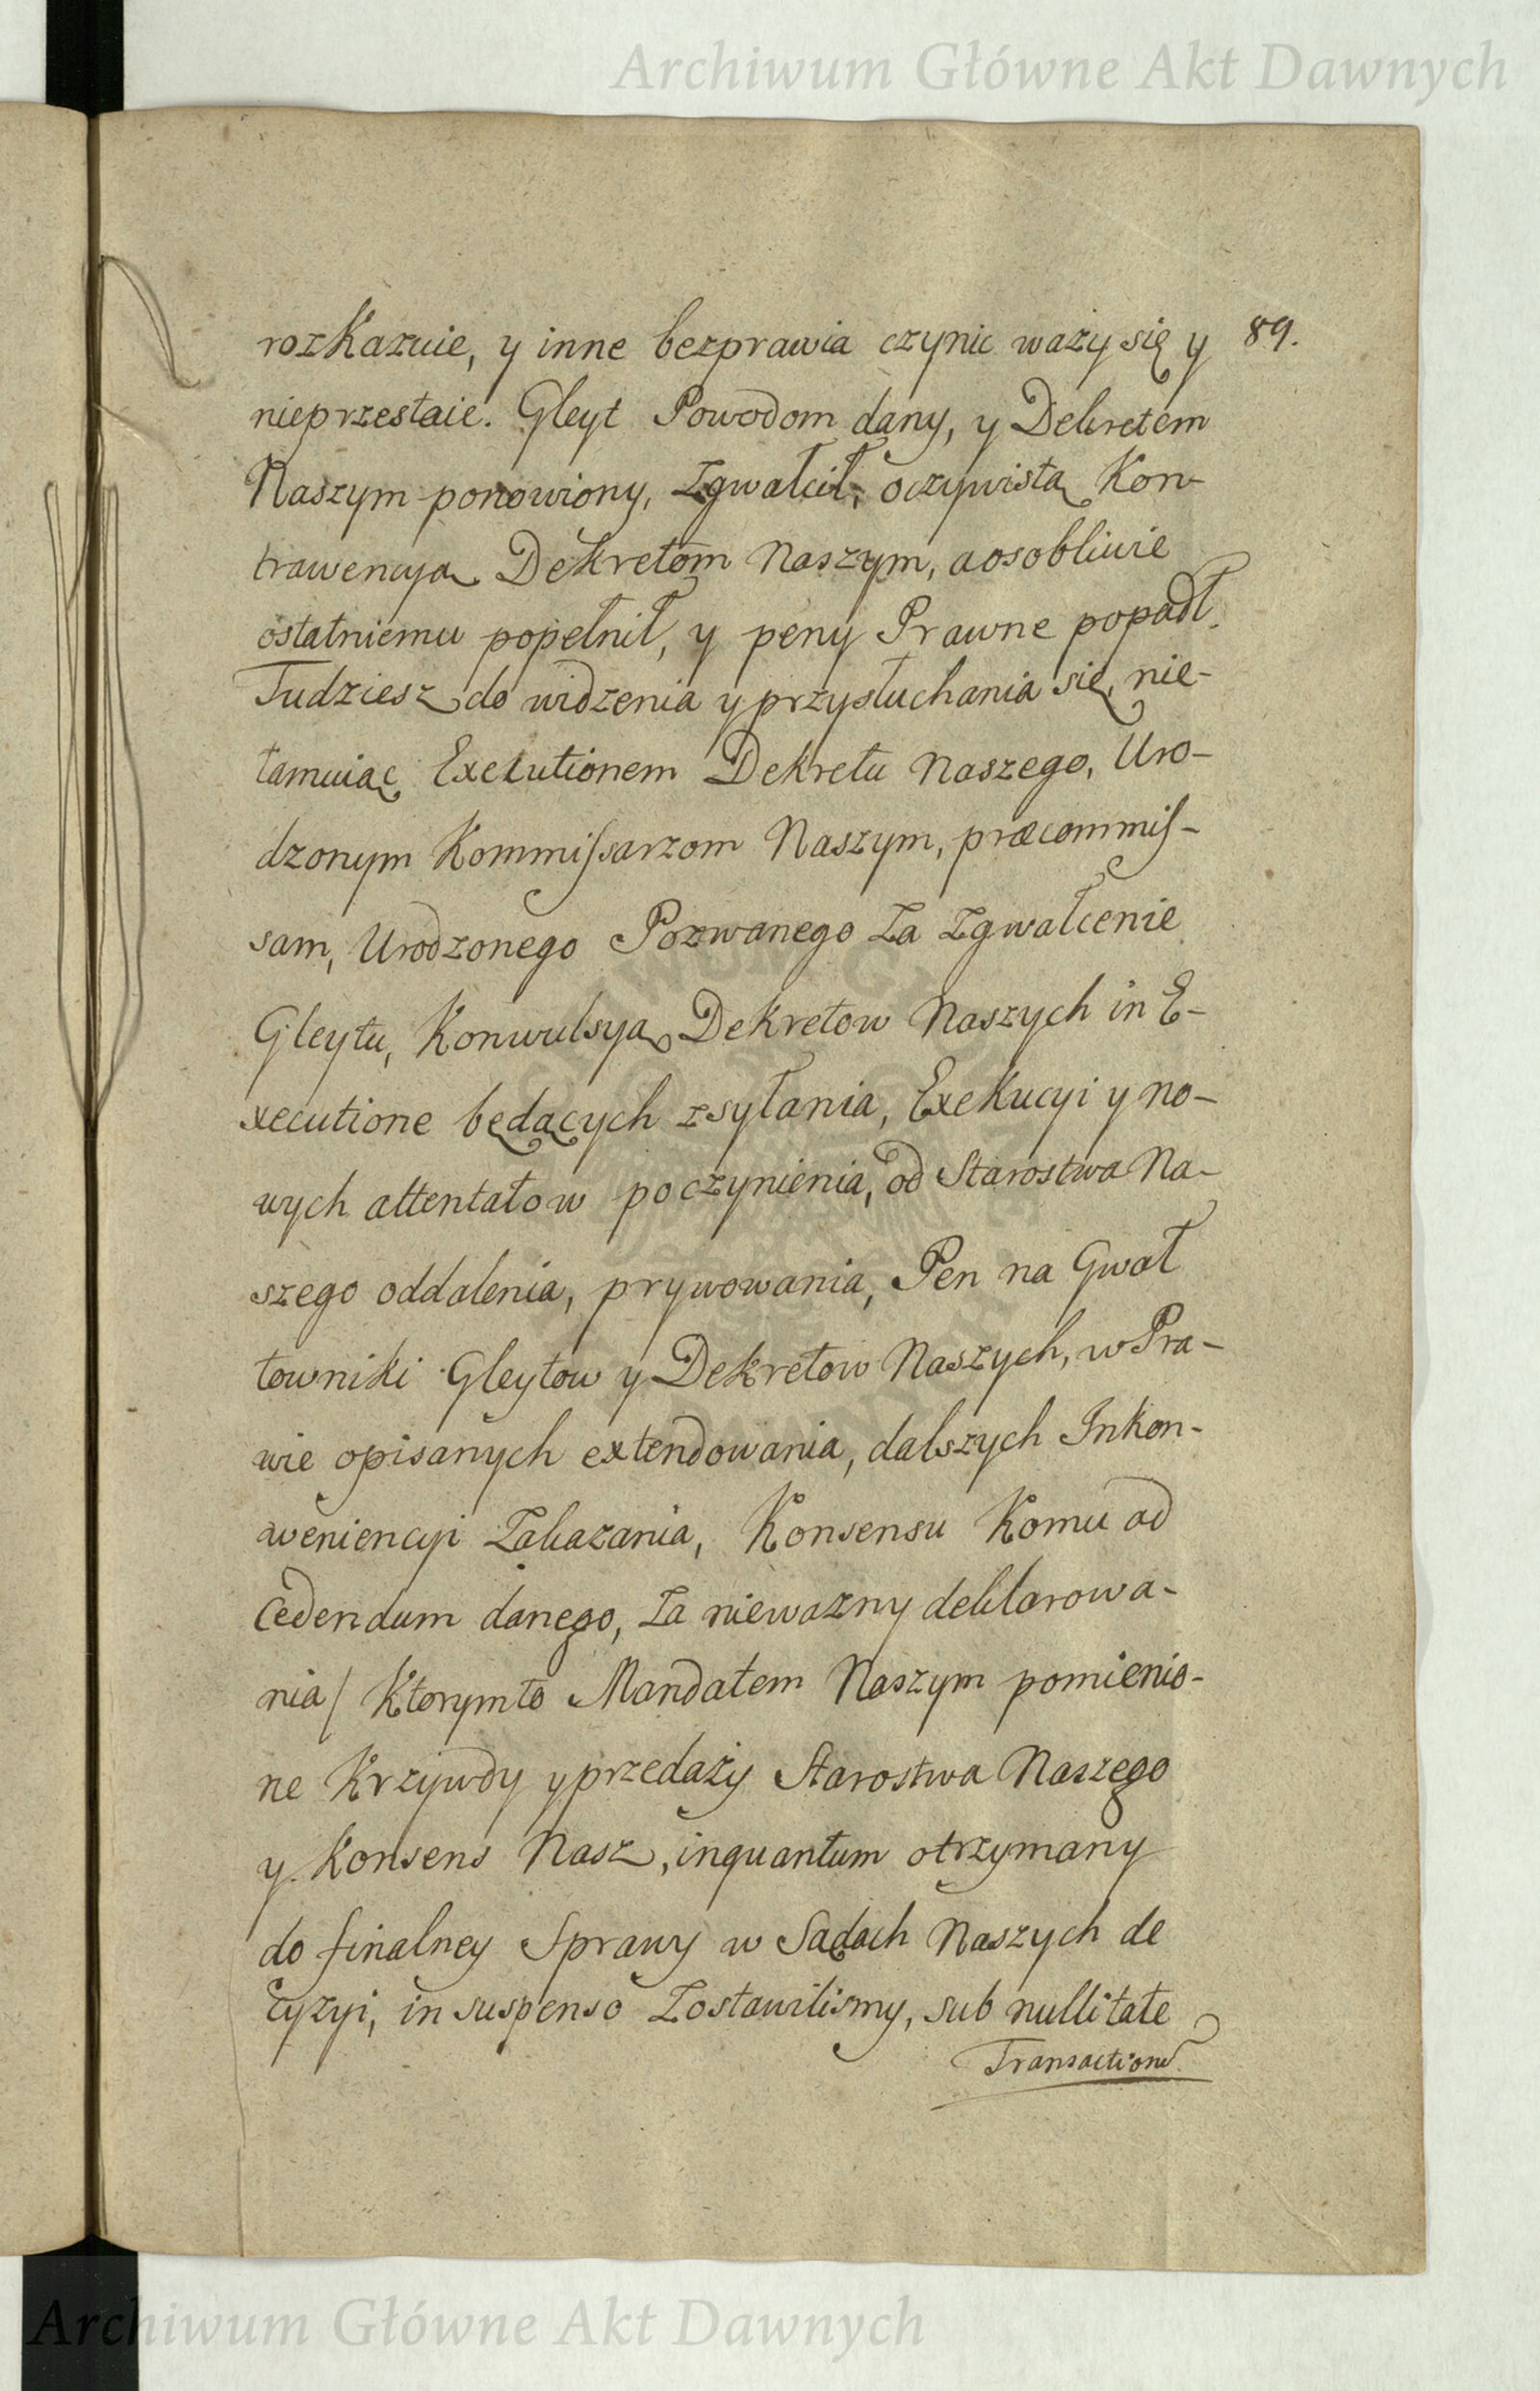 Archiwum Główne Akt Dawnych
89.
rozKazuie, y inne bezprawia czynic waży się y
nieprzestaie. Gleyt Powodom dany, y Dekretem
Naszym ponowiony, Zgwałcił, oczywistą Kon-
trawencyą Dekretom Naszym, a osobliwie
ostatniemu popełnił, y peny Prawne popadł.
Tudziesz do widzenia y przysłuchania się, nie-
tamuiąc Executionem Dekretu Naszego, Uro-
dzonym Kommissarzom Naszym, præcommis-
sam, Urodzonego Pozwanego Za Zgwałcenie
Gleytu, Konwulsyą Dekretow Naszych in E-
xecutione będących zsyłania, Exekucyi y no-
wych attentatow poczynienia, od Starostwa Na-
szego oddalenia, prywowania, Pen na Gwał
towniki Gleytow y Dekretow Naszych, w Pra-
wie opisanych extendowania, dalszych Inkon-
weniencyi Zakazania, Konsensu Komu ad
Cedendum danego, Za niewazny deklarowa-
nia/ Ktorymto Mandatem Naszym pomienio-
ne Krzywdy y przedaży Starostwa Naszego
y Konsens Nasz, inquantum otrzymany
do finalney Sprawy w Sądach Naszych de
cyzyi, in suspenso Zostawilismy, sub nullitate
Archiwum Główne Akt Dawnych